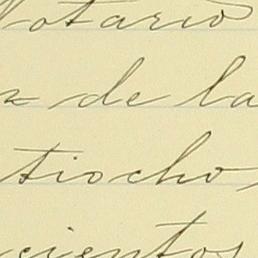 Notario
z de la
tiocho,
cientos